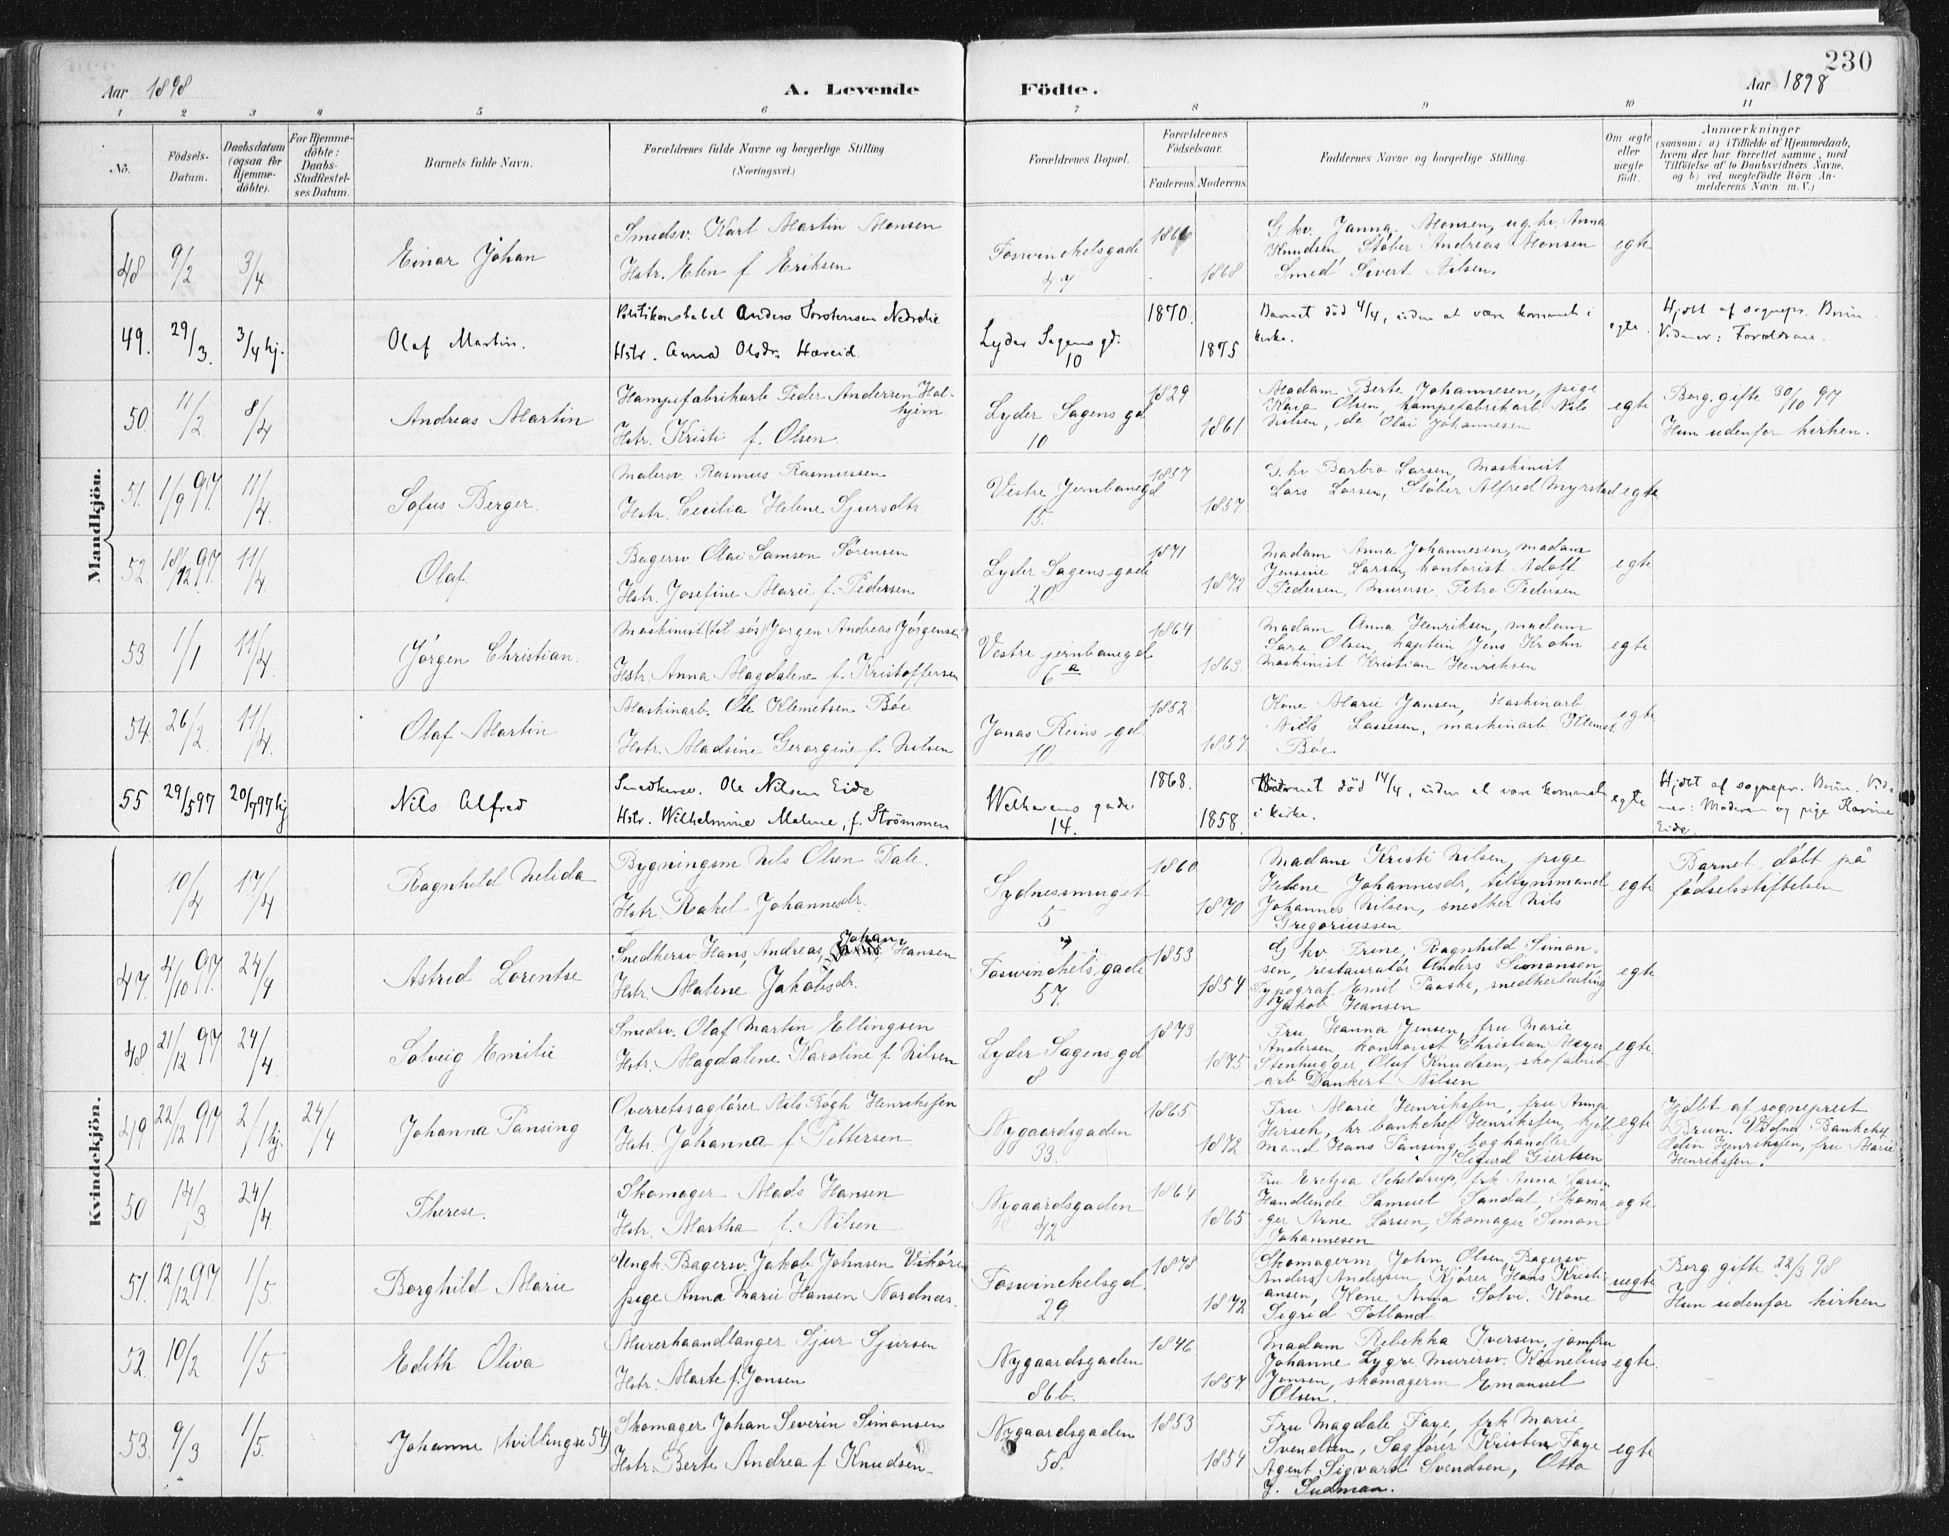 230
Aar 1898
A. Levende Födte.
Aar 1898
1 2 3 4 5 6 7 8 9 10 11
No.
Födsels-Datum.
Daabsdatum (ogsaa for Hjemme-döbte).
For Hjemme-döbte: Daabs-Stadfæstel-ses Datum.
Barnets fulde Navn.
Forældrenes fulde Navne og borgerlige Stilling (Næringsvei.)
Forældrenes Bopæl.
Forældrenes Födselsaar.
Faderens. Moderens.
Faddernes Navne og borgerlige Stilling.
Om ægte eller uægte födt.
Anmærkninger
(saasom: a) i Tilfælde af Hjemmedaab, hvem der har forrettet samme, med Tilföielse af to Daabsvidners Navne, og b) ved uægtefödte Börn An-melderens Navn m. V.)
Mandkjön.
48 9/2 3/4 Einar Johan
Smedsv. Karl Martin Monsen
Hstr. Elen f Eriksen
Foswinckelsgade 47
1868
G kv. Janna Monsen, ug.kv. Anna
Knudsen, Støber Andreas Monsen
Smed Sivert Nilsen.
egte
49. 29/3. 3/4 hj. Olaf Martin.
Politikonstabel Anders Torstensen Nedrelie
Hstr. Anna Olsdr. Hæreid.
Lyder Sagens gd. 10
1870. 1875
Barnet död 4/4, uden at være kommet i
kirke.
egte.
Hjdbt af sognepr. Brun.
Vidner: Forældrene.
50. 11/2 8/4 Andreas Martin
Hampefabrikarb. Peder Andersen Hal-
hjem.
Hstr. Kristi f. Olsen.
Lyder Sagens gd 10
1829 1861.
Madam Berte Johannesen, pige
Kaia Olsen, hampefabrikarb Nils
Nilsen, do Olai Johannesen
egte
Borg. gifte 30/10 97
Hun udenfor kirken.
51. 1/9 97. 11/4. Sofus Berger.
Malersv. Rasmus Rasmussen
Hstr. Cecilia Helene Sjursdtr.
Vestre Jernbanegd 15.
1857 1857
G. kv Barbro Larsen, Maskinist
Lars Larsen, Støber Alfred Myrstad
egte
52. 18/12 97. 11/4 Olaf
Bagersv Olai Samson Sørensen
Hstr. Josefine Marie f. Pedersen
Lyder Sagens gade 20.
1871 1872
Madam Anna Johannesen, madam
Jensine Larsen, kontorist Adolf
Pedersen, Murersv. Petro Pedersen
egte
53 1/1 11/4. Jørgen Christian.
Maskinist (til søs) Jørgen Andreas Jørgensen
Hstr. Anna Magdalene f. Kristoffersen
Vestre jernbanegd. 6 a
1864 1863.
Madam Anna Henriksen, madam
Sara Olsen, kaptein Jens Krohn
Maskinist Kristian Henriksen
egte
54. 26/2. 11/4. Olaf Martin
Maskinarb. Ole Klemetsen Bøe
Hstr. Madsine Gerorgine f. Nilsen
Jonas Reins gd 10.
1852 1857
Kone Marie Jansen, Maskinarb.
Nills Lassesen, maskinarb Klemet
Bøe.
egte
55 29/5 97 20/7 97 hj Nils Alfred
Snedkersv. Ole Nilsen Eide
Hstr. Wilhelmine Malene, f. Strömmen
Welhavens gade 14.
1868. 1858.
Barnet död 14/4, uden at være kommet
i kirke.
egte
Hjdbt af sognepr. Brun. Vid-
ner: Moderen og pige Karine
Eide.
Kvindekjön.
10/4 17/4 Ragnhild Nelida
Bygningsm Nils Olsen Dale.
Hstr. Rakel Johannesdr.
Sydnessmuget 5
1860 1870
Madam Kristi Nilsen, pige
Helene Johannesdr, tilsynsmand
Johannes Nilsen, snedker Nils
Gregoriussen
egte
Barnet döbt på
födselsstiftelsen
47. 4/10 97. 24/4 Astrid Lorentse
Snedkersv. Hans, Andreas, Johan, Hansen
Hstr. Malene Jakobsdr.
Foswinckels gade 57.
1853 1854
G kv Trine, Ragnhild Simon-
sen, restauratør Anders Simonsen,
Typograf Emil Paaske, snedkerlærling
Jakob Hansen
egte
48. 21/12 97 24/4. Solveig Emilie
Smedsv. Olaf Martin Ellingsen
Hstr. Magdalene Karoline f. Nilsen
Lyder Sagens gd 8
1873 1875.
Fru Hanna Jensen, fru Marie
Andersen kontorist Christian Meyer
Stenhugger Oluf Knudsen, skofabrik-
arb Dankert Nilsen
egte
49 22/12 97 2/1 hj. 24/4 Johanna Pansing
Overretssagfører Nils Bögh Henrikssen
Hstr. Johanna f Pettersen
Nygaardsgaden 33.
1865 1872
Fru Marie Henrikssen, fru Anna
Hirsch, hr bankchef Henrikssen, kjöb-
mand Hans Pansing, boghandler
Sigurd Giertsen
egte
Hjdbt af sogneprest
Brun. Vidner Bankchef
Henrikssen, fru Marie
Henrikssen.
50 14/3 24/4 Therese.
Skomager Mads Hansen
Hstr. Martha f. Nilsen
Nygaardsgaden 42
1864 1865
Fru Scheldrup, frk Anna Larsen
Handlende Samuel Sandal, Skoma-
ger Arne Larsen, Skomager Simon
Johannesen
egte
51. 12/12 97 1/5. Borghild Marie
Ungk. Bagersv. Jakob Johnsen Vikøren
pige Anna Marie Hansen Nordnes.
Foswinckelsgd. 29
1878 1872
Skomagerm John Olsen, Bagersv
Anders Andersen, Kjører Hans Kristi-
ansen, Kone Anna Solvi. Kone
Sigrid Totland
uegte
Borg gifte 22/3 98
Hun udenfor kirken
52. 10/2 1/5 Edith Oliva
Murerhaandlanger Sjur Sjursen
Hstr. Marte f. Jonsen
Nygaardsgaden 86b.
1846 1857
Madam Rebekka Iversen, jomfru
Johanne Lygre Murersv. Kornelius
Jensen, skomagerm Emanuel
Olsen.
egte.
53. 9/3 1/5. Johanne (tvilling se 54)
Skomager Johan Severin Simonsen
Hstr. Berte Andrea f Knudsen
Nygaardsgaden 58.
1853 1854
Fru Magdale Faye, frk Marie
Svendsen, Sagfører Kristen Faye
Agent Sigvard Svendsen, Otto
J. Sudman.
egte